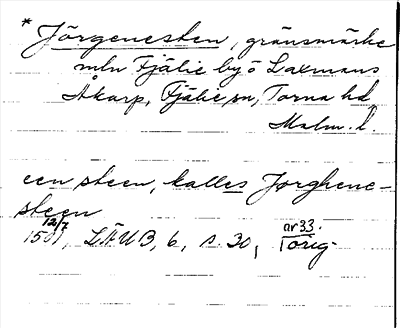 * Jörgenesten, gränsmärke
mln Fjälie by o Laxmans
Åkarp, Fjälie sn, Torna hd,
Malm. l.
een steen, kalles Jørghene-
steen
12/7
150, LÄUB, 6, s. 30, nr 33.
orig.